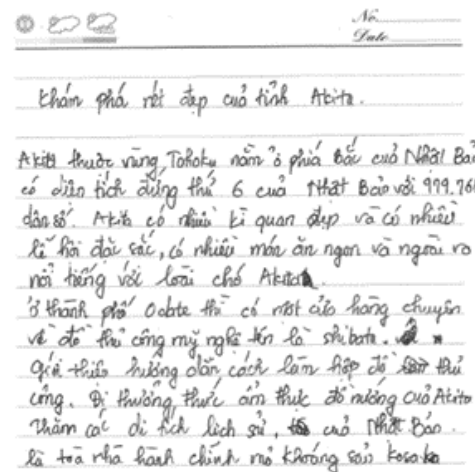 No.
Date
Khám phá nét đẹp cuả tỉnh Akita.
Akita thuộc vùng Tohoku nằm ở phiá Bắc cuả Nhật Bản
có diện tích đứng thứ 6 cuả Nhật Bản với 999.76
dân số. Akita có nhiều kì quan đẹp và có nhiều
lễ hội đặc sắc, có nhiều món ăn ngon và ngoài ra
nổi tiếng với loài chó Akita.
ở thành phố Odate thì có một cửa hàng chuyên
về đồ thủ công mỹ nghệ tên là shibata.
giới thiệu hướng dẫn cách làm hộp đồ thủ
công. Đi thưởng thức ẩm thực đồ nướng cuả Akita
Thăm các di tích lịch sử, cuả Nhật Bản.
là toà nhà hành chính mỏ khoáng sản kosaka